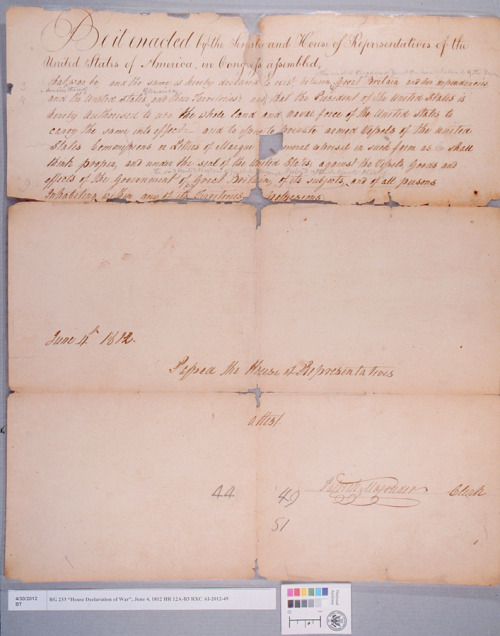 Be it enacted by the Senate and House of Representatives of the
United States of America, in Congress assembled,
that war be and the same is hereby declared to exist between Great Britain and her dependencies
and the United States and their Territories and that the President of the United States is
hereby Authorised to use the whole land and naval force of the United States to
carry the same into effect and to issue to private armed vessels of the United
States Commissions or Letters of Marque general reprisal in such form as he shall
think proper, and under the seal of the United States, against the Vessels Goods and
effects of the Government of Great Britain, of its subjects, and of all persons
Inhabiting within any of its Territories Possessions
June 4th 1812.
Passed the House of Representatives
attest.
44
49
51
Clerk
4/30/2012
BT
RG 233 "House Declaration of War", June 4, 1812 HR 12A-B3 RXC AI-2012-49